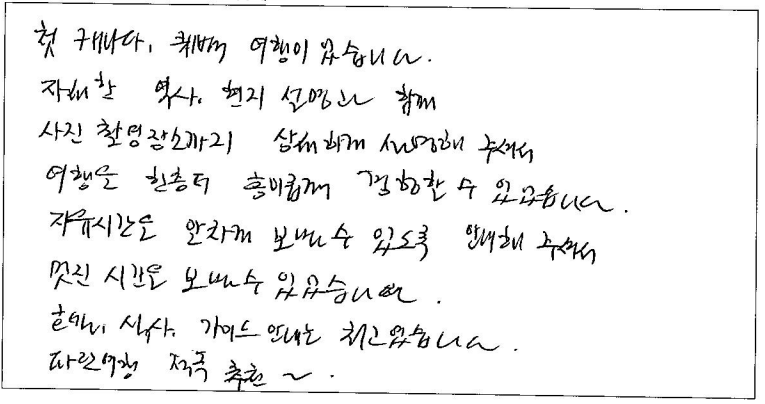 첫 캐나다, 퀘벡 여행이었습니다.
자세한 역사, 현지 설명과 함께
사진 촬영장소까지 상세하게 설명해 주셔서
여행을 한층더 흥미롭게 경험할 수 있었습니다.
자유시간도 알차게 보낼 수 있도록 안내해 주셔서
멋진 시간을 보낼 수 있었습니다.
호텔, 식사, 가이드 안내는 최고였습니다.
파란여행 적극 추천 ~.